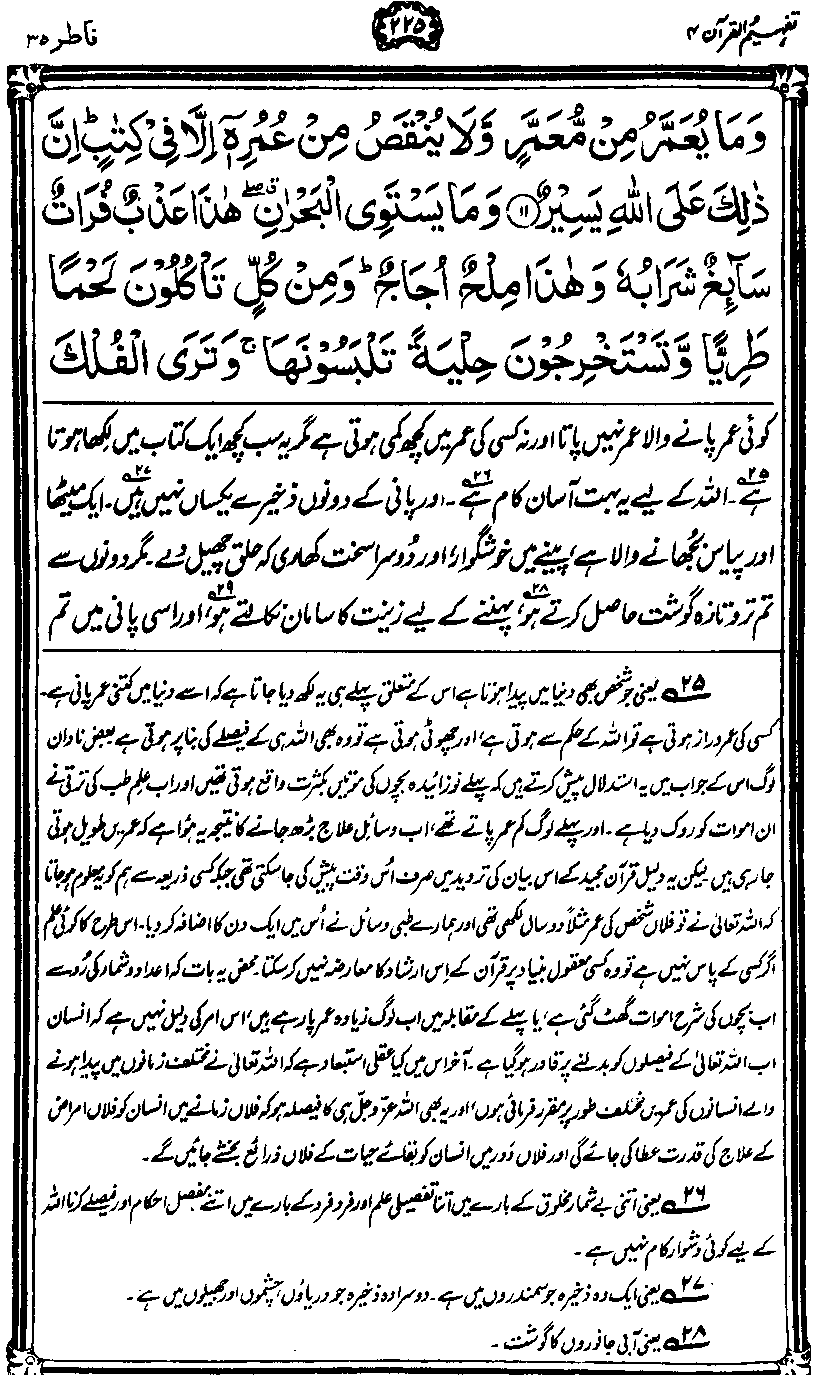 تفہیم القرآن ۴
۲۲۵
فاطر ۳۵
وَمَا يُعَمَّرُ مِنْ مُّعَمَّرٍ وَّلَا يُنْقَصُ مِنْ عُمُرِهٖٓ اِلَّا فِيْ كِتٰبٍ ؕ اِنَّ
ذٰلِكَ عَلَى اللّٰهِ يَسِيْرٌ ۝۱۱ وَمَا يَسْتَوِى الْبَحْرٰنِ ۖۗ هٰذَا عَذْبٌ فُرَاتٌ
سَآىِٕغٌ شَرَابُهٗ وَهٰذَا مِلْحٌ اُجَاجٌ ؕ وَمِنْ كُلٍّ تَاْكُلُوْنَ لَحْمًا
طَرِيًّا وَّتَسْتَخْرِجُوْنَ حِلْيَةً تَلْبَسُوْنَهَا ۚ وَتَرَى الْفُلْكَ
کوئی عمر پانے والا عمر نہیں پاتا اور نہ کسی کی عمر میں کچھ کمی ہوتی ہے مگر یہ سب کچھ ایک کتاب میں لکھا ہوتا
ہے۲۵۔ اللہ کے لیے یہ بہت آسان کام ہے۲۶۔ اور پانی کے دونوں ذخیرے یکساں نہیں ہیں۲۷۔ ایک میٹھا
اور پیاس بجھانے والا ہے، پینے میں خوشگوار، اور دُوسرا سخت کھاری کہ حلق چھیل دے۔ مگر دونوں سے
تم تروتازہ گوشت حاصل کرتے ہو۲۸، پہننے کے لیے زینت کا سامان نکالتے ہو۲۹، اور اسی پانی میں تم
۲۵ یعنی جو شخص بھی دنیا میں پیدا ہوتا ہے اس کے متعلق پہلے ہی یہ لکھ دیا جاتا ہے کہ اسے دنیا میں کتنی عمر پانی ہے۔
کسی کی عمر دراز ہوتی ہے تو اللہ کے حکم سے ہوتی ہے، اور چھوٹی ہوتی ہے تو وہ بھی اللہ ہی کے فیصلے کی بنا پر ہوتی ہے بعض نادان
لوگ اس کے جواب میں یہ استدلال پیش کرتے ہیں کہ پہلے نوزائیدہ بچوں کی موتیں بکثرت واقع ہوتی تھیں اور اب علم طب کی ترقی نے
ان اموات کو روک دیا ہے۔ اور پہلے لوگ کم عمر پاتے تھے، اب وسائل علاج بڑھ جانے کا نتیجہ یہ ہوا ہے کہ عمریں طویل ہوتی
جا رہی ہیں لیکن یہ دلیل قرآن مجید کے اس بیان کی تردید میں صرف اُس وقت پیش کی جا سکتی تھی جبکہ کسی ذریعہ سے ہم کو یہ معلوم ہو جاتا
کہ اللہ تعالیٰ نے تو فلاں شخص کی عمر مثلاً دو سال لکھی تھی اور ہمارے طبی وسائل نے اُس میں ایک دن کا اضافہ کر دیا۔ اس طرح کا کوئی علم
اگر کسی کے پاس نہیں ہے تو وہ کسی معقول بنیاد پر قرآن کے اِس ارشاد کا معارضہ نہیں کر سکتا۔ محض یہ بات کہ اعداد و شمار کی رُو سے
اب بچوں کی شرح اموات گھٹ گئی ہے، یا پہلے کے مقابلہ میں اب لوگ زیادہ عمر پا رہے ہیں، اس امر کی دلیل نہیں ہے کہ انسان
اب اللہ تعالیٰ کے فیصلوں کو بدلنے پر قادر ہو گیا ہے۔ آخر اس میں کیا عقلی استبعاد ہے کہ اللہ تعالیٰ نے مختلف زمانوں میں پیدا ہونے
والے انسانوں کی عمریں مختلف طور پر مقرر فرمائی ہوں، اور یہ بھی اللہ عزّ و جلّ ہی کا فیصلہ ہو کہ فلاں زمانے میں انسان کو فلاں امراض
کے علاج کی قدرت عطا کی جائے گی اور فلاں دَور میں انسان کو بقائے حیات کے فلاں ذرائع بخشے جائیں گے۔
۲۶ یعنی اتنی بے شمار مخلوق کے بارے میں اتنا تفصیلی علم اور فرد فرد کے بارے میں اتنے مفصل احکام اور فیصلے کرنا اللہ
کے لیے کوئی دشوار کام نہیں ہے۔
۲۷ یعنی ایک وہ ذخیرہ جو سمندروں میں ہے۔ دوسرا وہ ذخیرہ جو دریاؤں، چشموں اور جھیلوں میں ہے۔
۲۸ یعنی آبی جانوروں کا گوشت۔